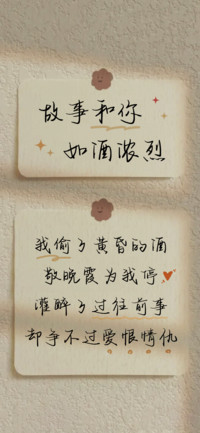 故事和你
如酒浓烈
我偷了黄昏的酒
敬晚霞为我停
灌醉了过往前事
却争不过爱恨情仇